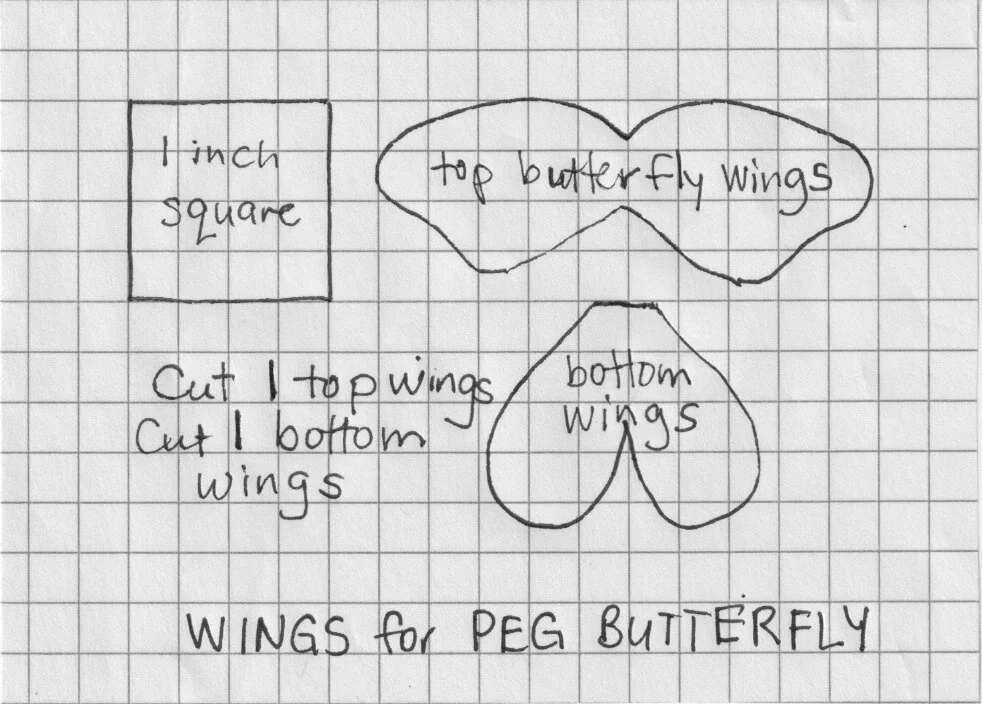 1 inch
square
top butterfly wings
bottom
wings
Cut 1 top wings
Cut 1 bottom
wings
WINGS for PEG BUTTERFLY